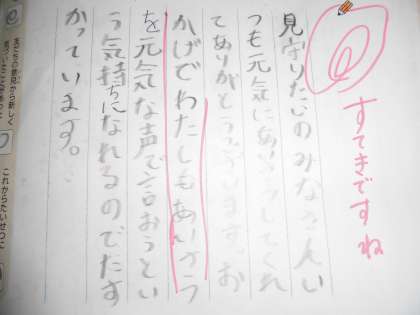 すてきですね
見守りたいのみなさんい
つも元気にあいさつしてくれ
てありがとうございます。お
かげでわたしもあいさつ
を元気な声で言おうとい
う気持ちになれるのでたす
かっています。
友だちの意見から新しく
これからたいせつに